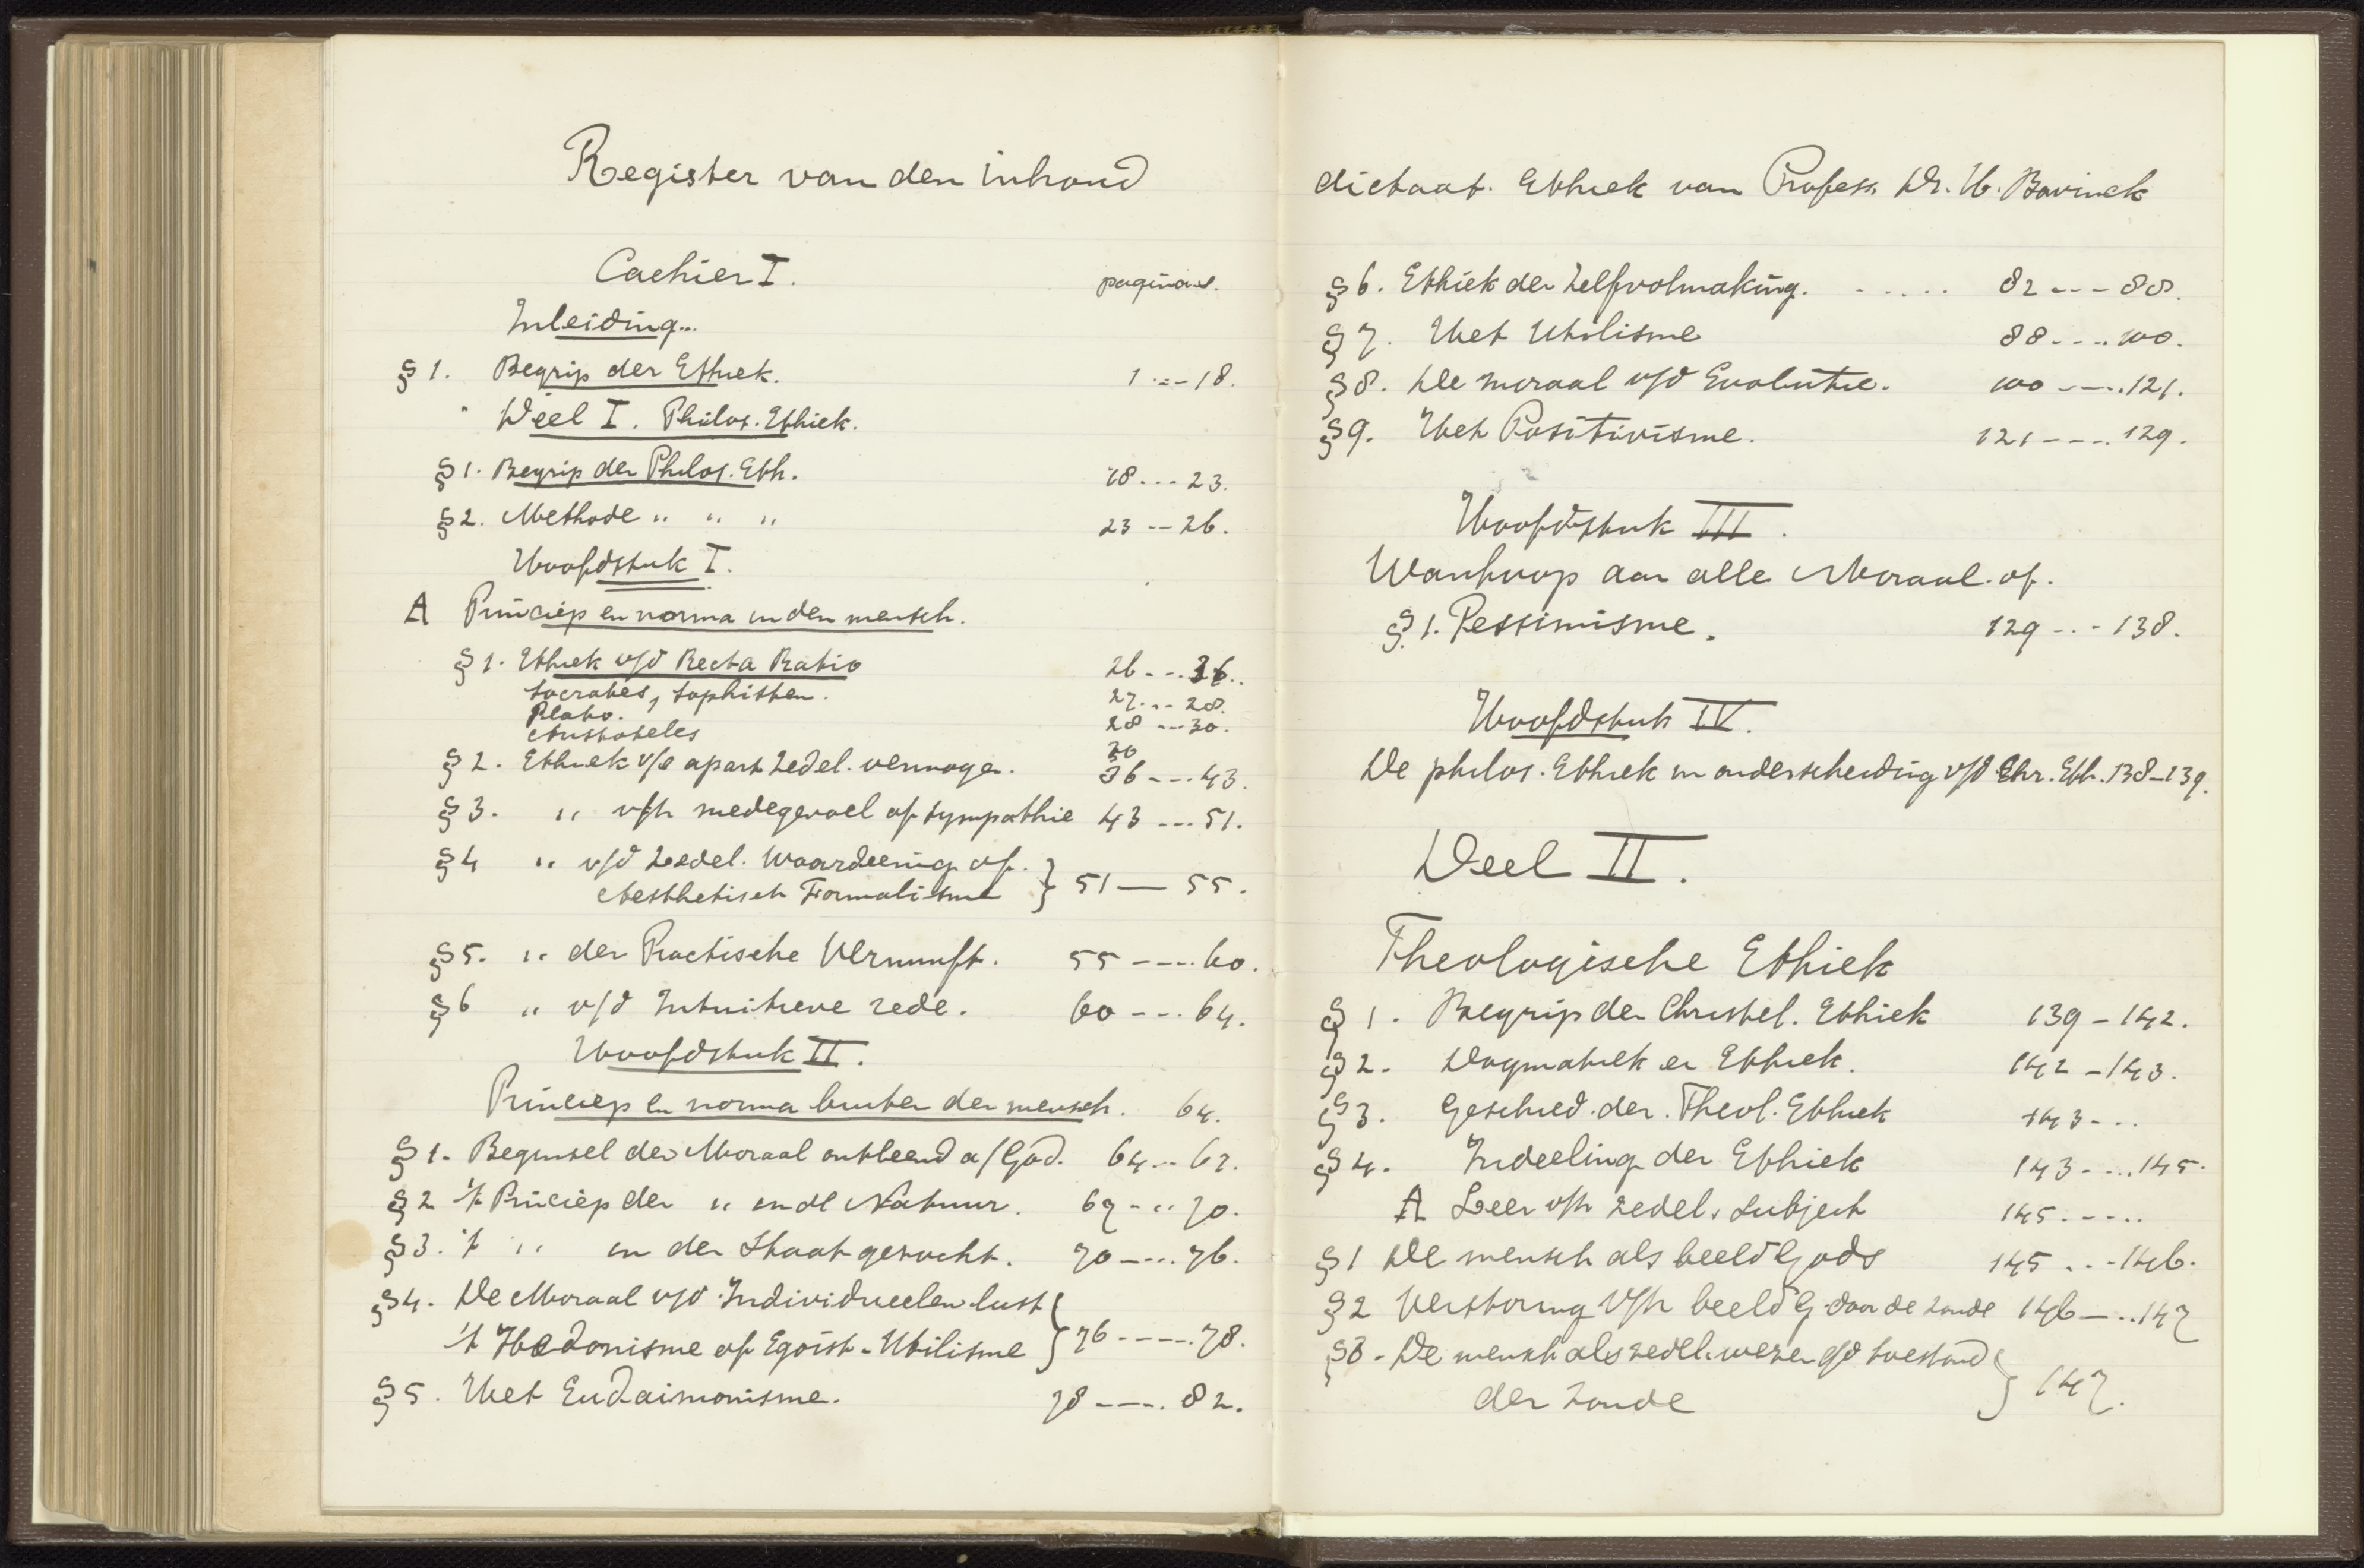 Register van den inhoud
Cachier I.
paginaas.
Inleiding..
§ 1. Begrip der Ethiek. 1 --- 18.
" Deel I. Philos. Ethiek.
§ 1. Begrip der Philos. Eth. 18 --- 23.
§ 2. Methode " " " 23 -- 26.
Hoofdstuk I.
A Princiep en norma in den mensch.
§ 1. Ethiek v/d Recta Ratio 26 --- 36..
Socrates, Sophisten. 27 --- 28.
Plato. 28 --- 30.
Aristoteles 30
§ 2. Ethiek v/e apart zedel. vermogen. 36 --- 43.
§ 3. " v/h medegevoel of sympathie 43 --- 51.
§ 4 " v/d zedel. waardeering of.
Aesthetisch Formalisme } 51 — 55.
§ 5. " der Practische Vernunft. 55 ---- 60.
§ 6 " v/d Intuitieve rede. 60 --- 64.
Hoofdstuk II.
Princiep en norma buiten den mensch. 64.
§ 1. Beginsel der Moraal ontleend a/God. 64 -- 67.
§ 2 't Princiep der " in de Natuur. 67 --- 70.
§ 3. 't " in den Staat gezocht. 70 ---- 76.
§ 4. De Moraal v/d Individueelen lust
't Hedonisme of Egoist-Utilisme } 76 ----- 78.
§ 5. Het Eudaimonisme. 78 ---- 82.
dictaat. Ethiek van Profess. Dr. H. Bavinck
§ 6. Ethiek der Zelfvolmaking. ..... 82 --- 88.
§ 7. Het Utilisme 88 ---- 100.
§ 8. De moraal v/d Evolutie. 100 ---- 121.
§ 9. Het Positivisme. 121 ---- 129.
Hoofdstuk III.
Wanhoop aan alle Moraal. of.
§ 1. Pessimisme. 129 --- 138.
Hoofdstuk IV.
De philos. Ethiek in onderscheiding v/d Chr. Eth. 138-139.
Deel II.
Theologische Ethiek
§ 1. Begrip der Christel. Ethiek 139 - 142.
§ 2. Dogmatiek en Ethiek. 142 - 143.
§ 3. Geschied. der. Theol. Ethiek 143 ---
§ 4. Indeeling der Ethiek 143 ---- 145.
A Leer v/h zedel. subject 145 -----
§ 1 De mensch als beeld Gods 145 --- 146.
§ 2 Verstoring v/h beeld G. door de zonde 146 --- 147
§ 3. De mensch als zedel. wezen i/d toestand
der zonde } 147.